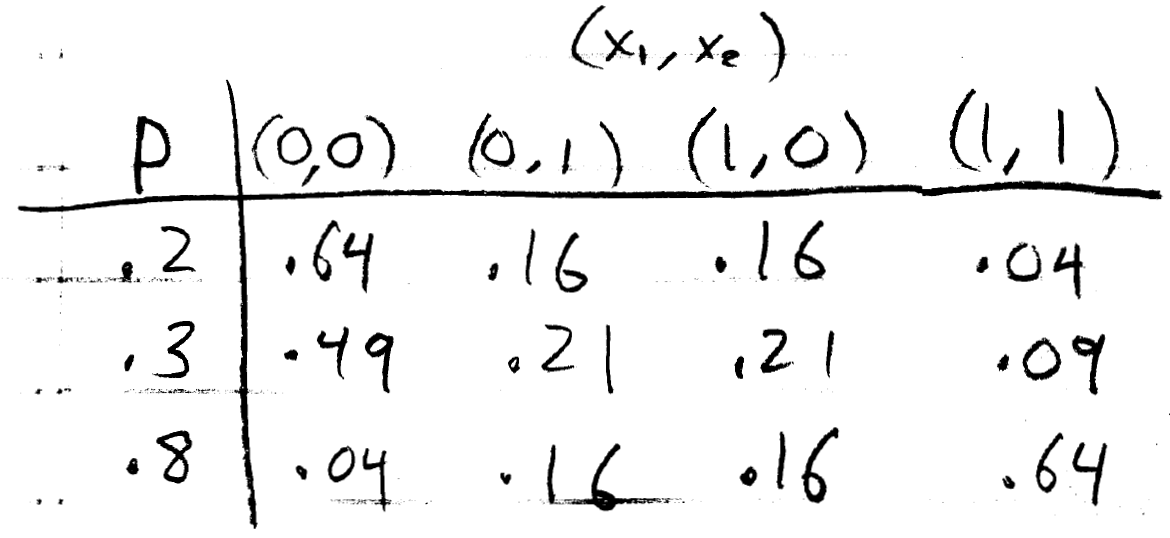 (x₁, x₂)
p (0,0) (0,1) (1,0) (1,1)
.2 .64 .16 .16 .04
.3 .49 .21 .21 .09
.8 .04 .16 .16 .64